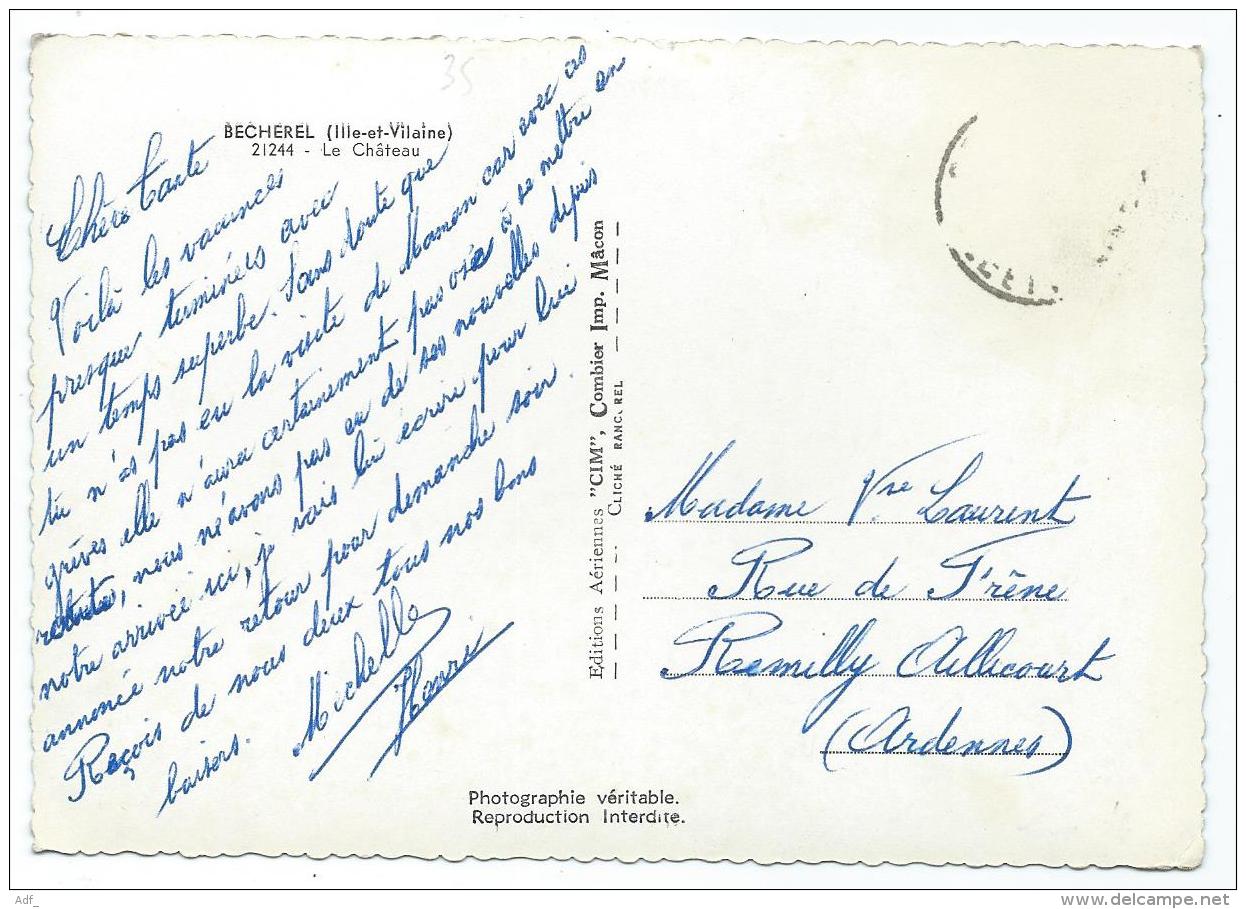 35
BECHEREL (Ille-et-Vilaine)
21244 - Le Château
Chère Tante
Voilà les vacances
presque terminées avec
un temps superbe. Sans doute que
tu n'as pas eu la visite de Maman car avec ces
grèves elle n'aura certainement pas osée à se mettre en
route, nous n'avons pas eu de ses nouvelles depuis
notre arrivée ici, je vais lui écrire pour lui
annoncé notre retour pour demanche soir.
Reçois de nous deux tous nos bons
baisers.
Michelle
Editions Aériennes "CIM", Combier Imp. Mâcon
CLICHÉ RANC. REL
Madame Vve Laurent
Rue de Frêne
Remilly Aillicourt
(Ardennes)
Photographie véritable.
Reproduction Interdite.
Adf_
delcampe.net